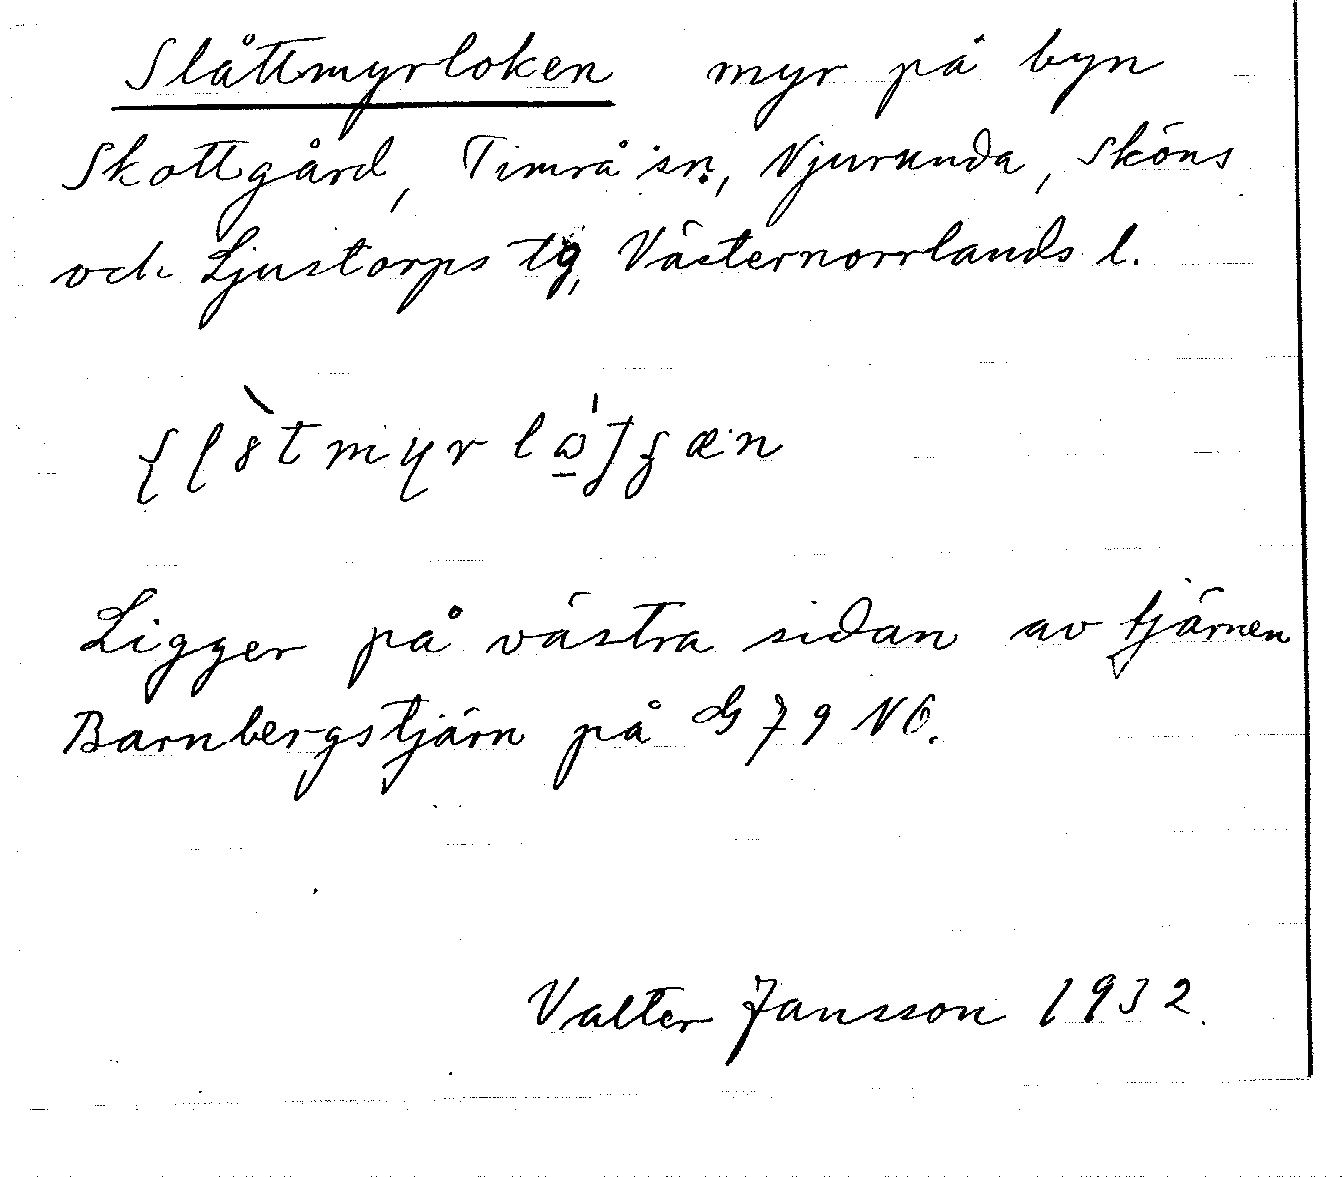 Slåttmyrloken myr på byn
Skottgård, Timrå sn., Njurunda, Sköns
och Ljustorps tg, Västernorrlands l.
Ligger på västra sidan av tjärnen
Barnbergstjärn på G 79 NO.
Valter Jansson 1932.